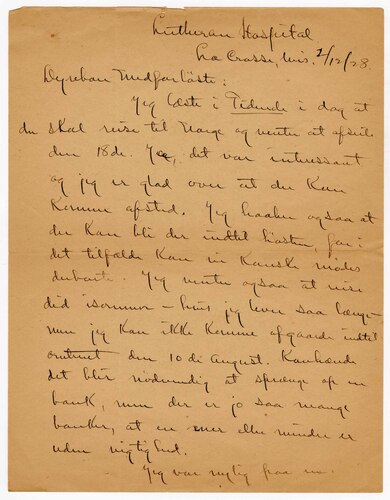 Lutheran Hospital
La Crosse, Wis. 2/12/28.
Dyreban Medforløste:
Jeg læste i Tidende i dag at
du skal reise til Norge og venter at afseile
den 18de. Ja, det var interessant
og jeg er glad over at du kan
komme afsted. Jeg haaber ogsaa at
du kan bli der indtil høsten, for i
det tilfælde kan vi kanske mødes
derborte. Jeg venter ogsaa at reise
did isommer – hvis jeg lever saa længe –
men jeg kan ikke komme afgaarde indtil
omtrent den 10de August. Kanhænde
det blir nødvendig at sprænge op en
bank, men der er jo saa mange
banker, at en mer eller mindre er
uden vigtighed.
Jeg var nylig fraa